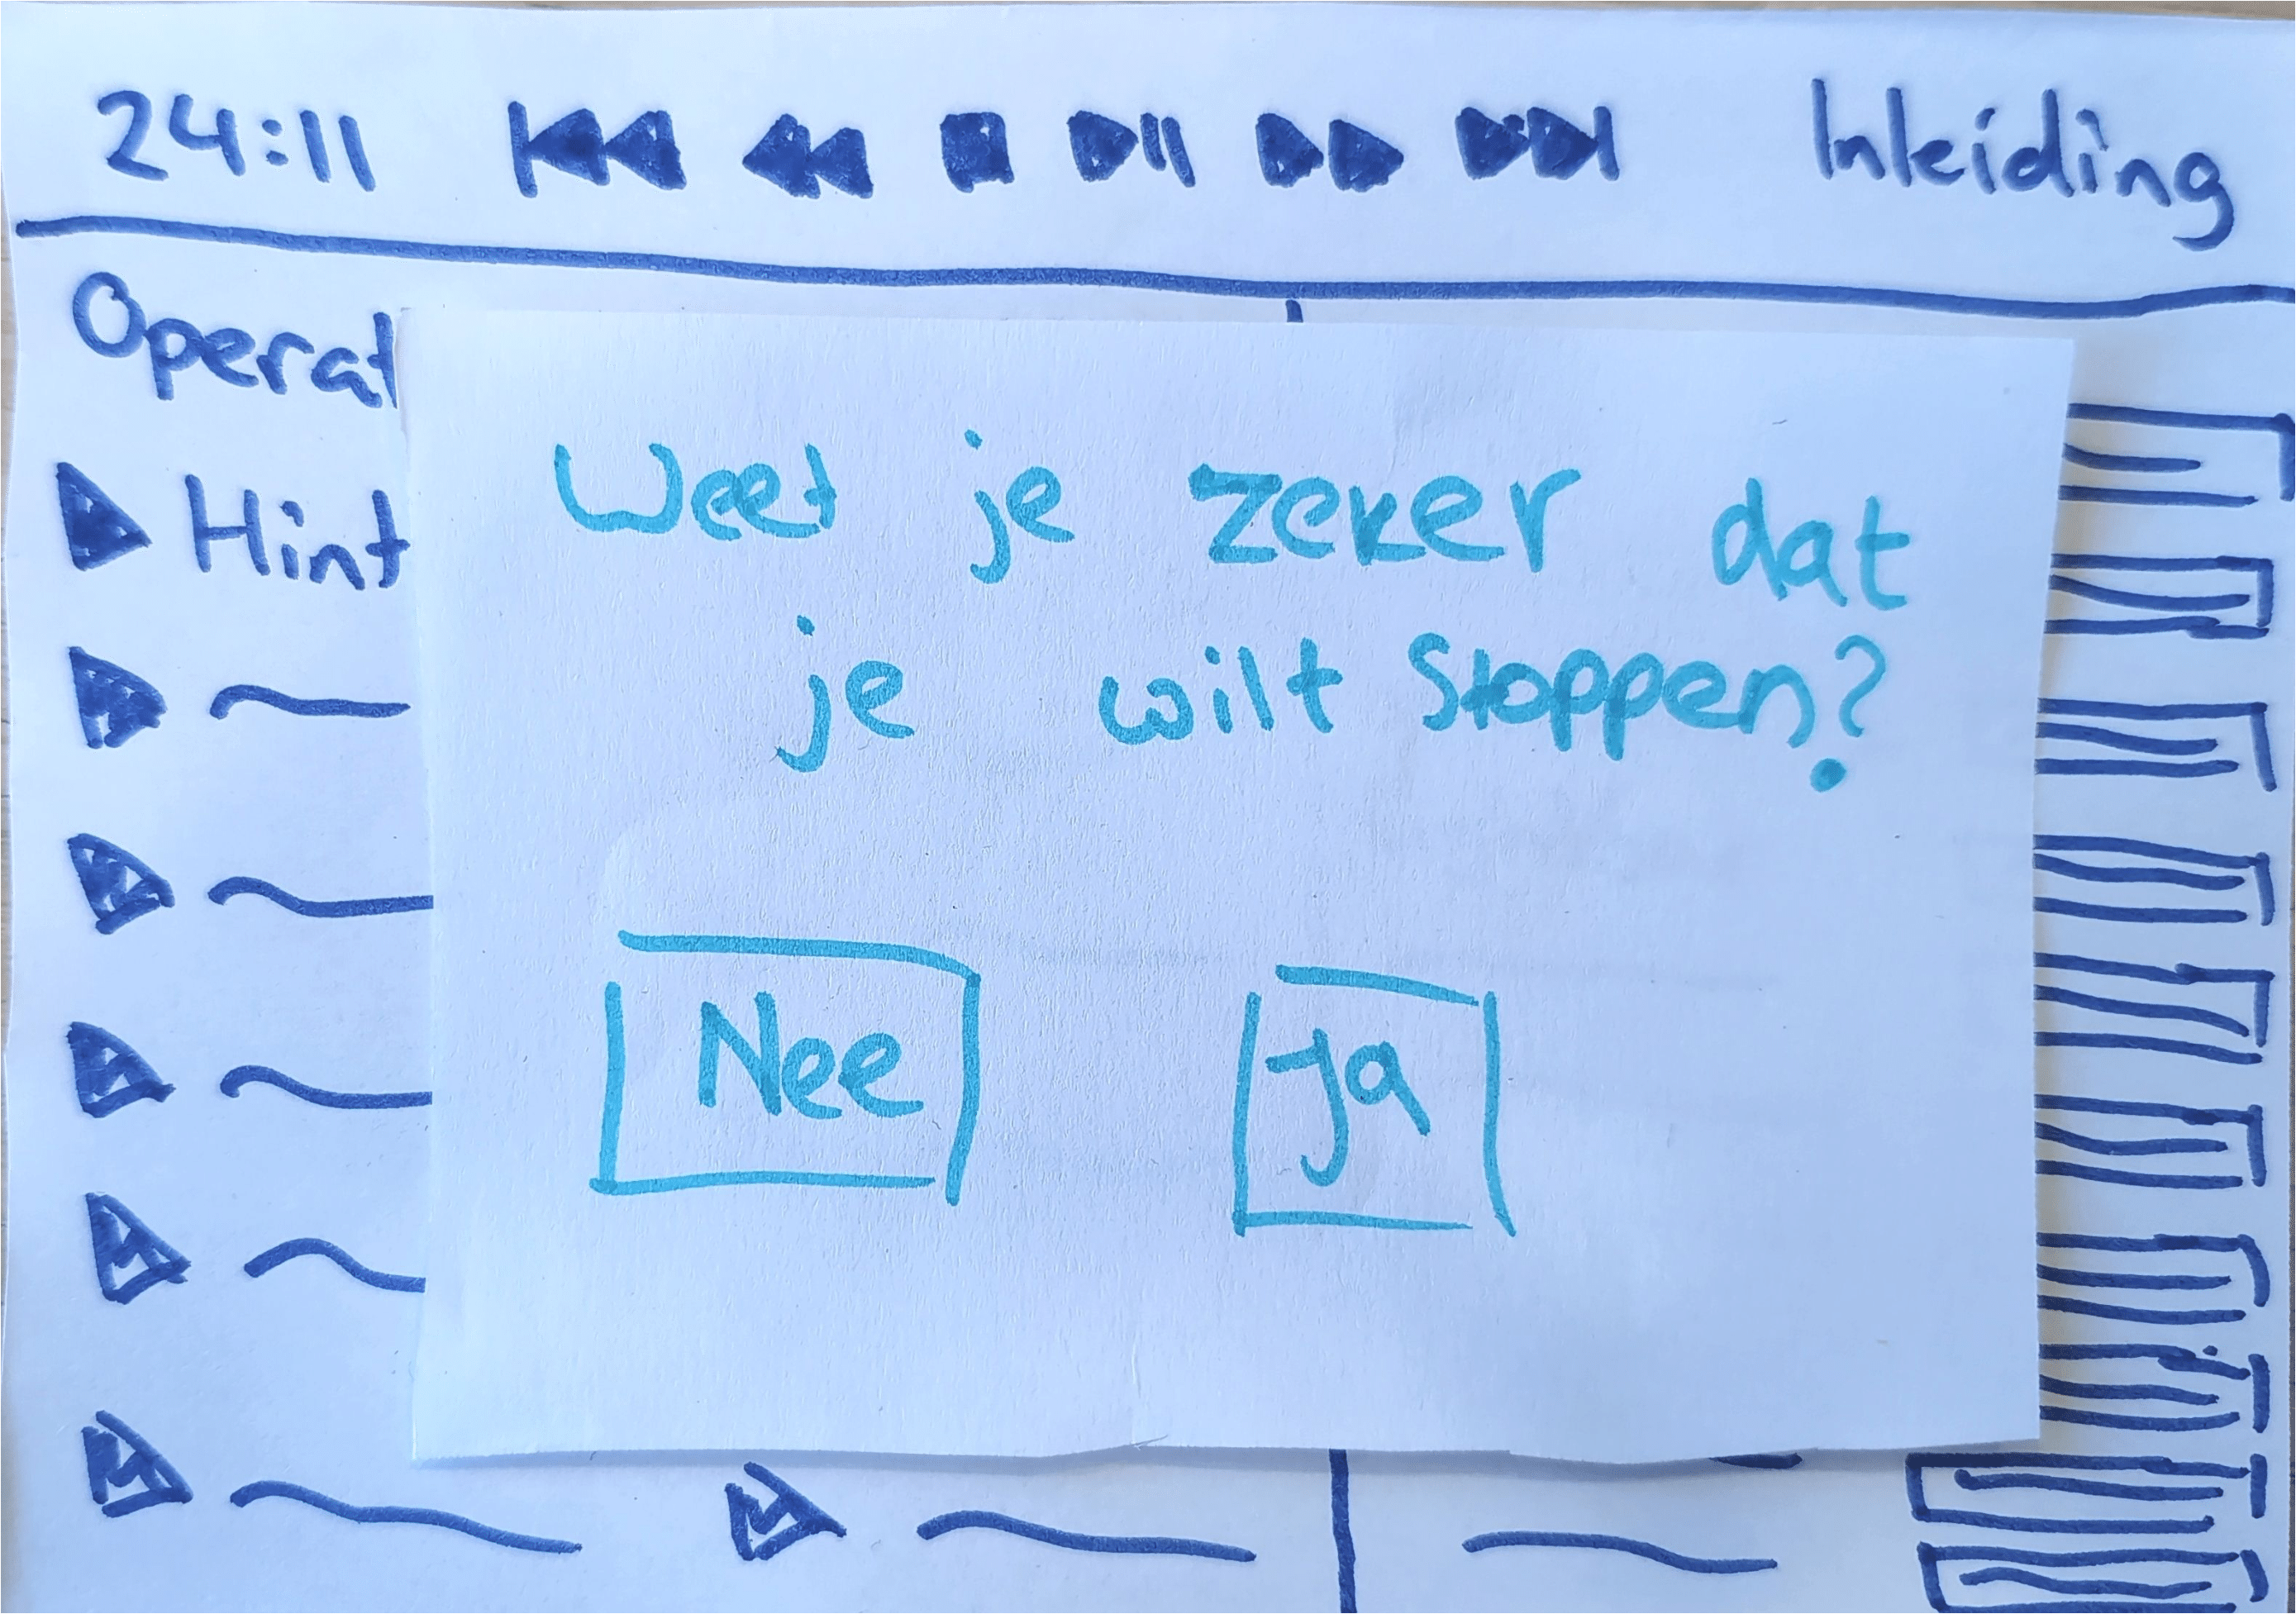 24:11 Inleiding
Operat
Hint
Weet je zeker dat
je wilt stoppen?
Nee Ja